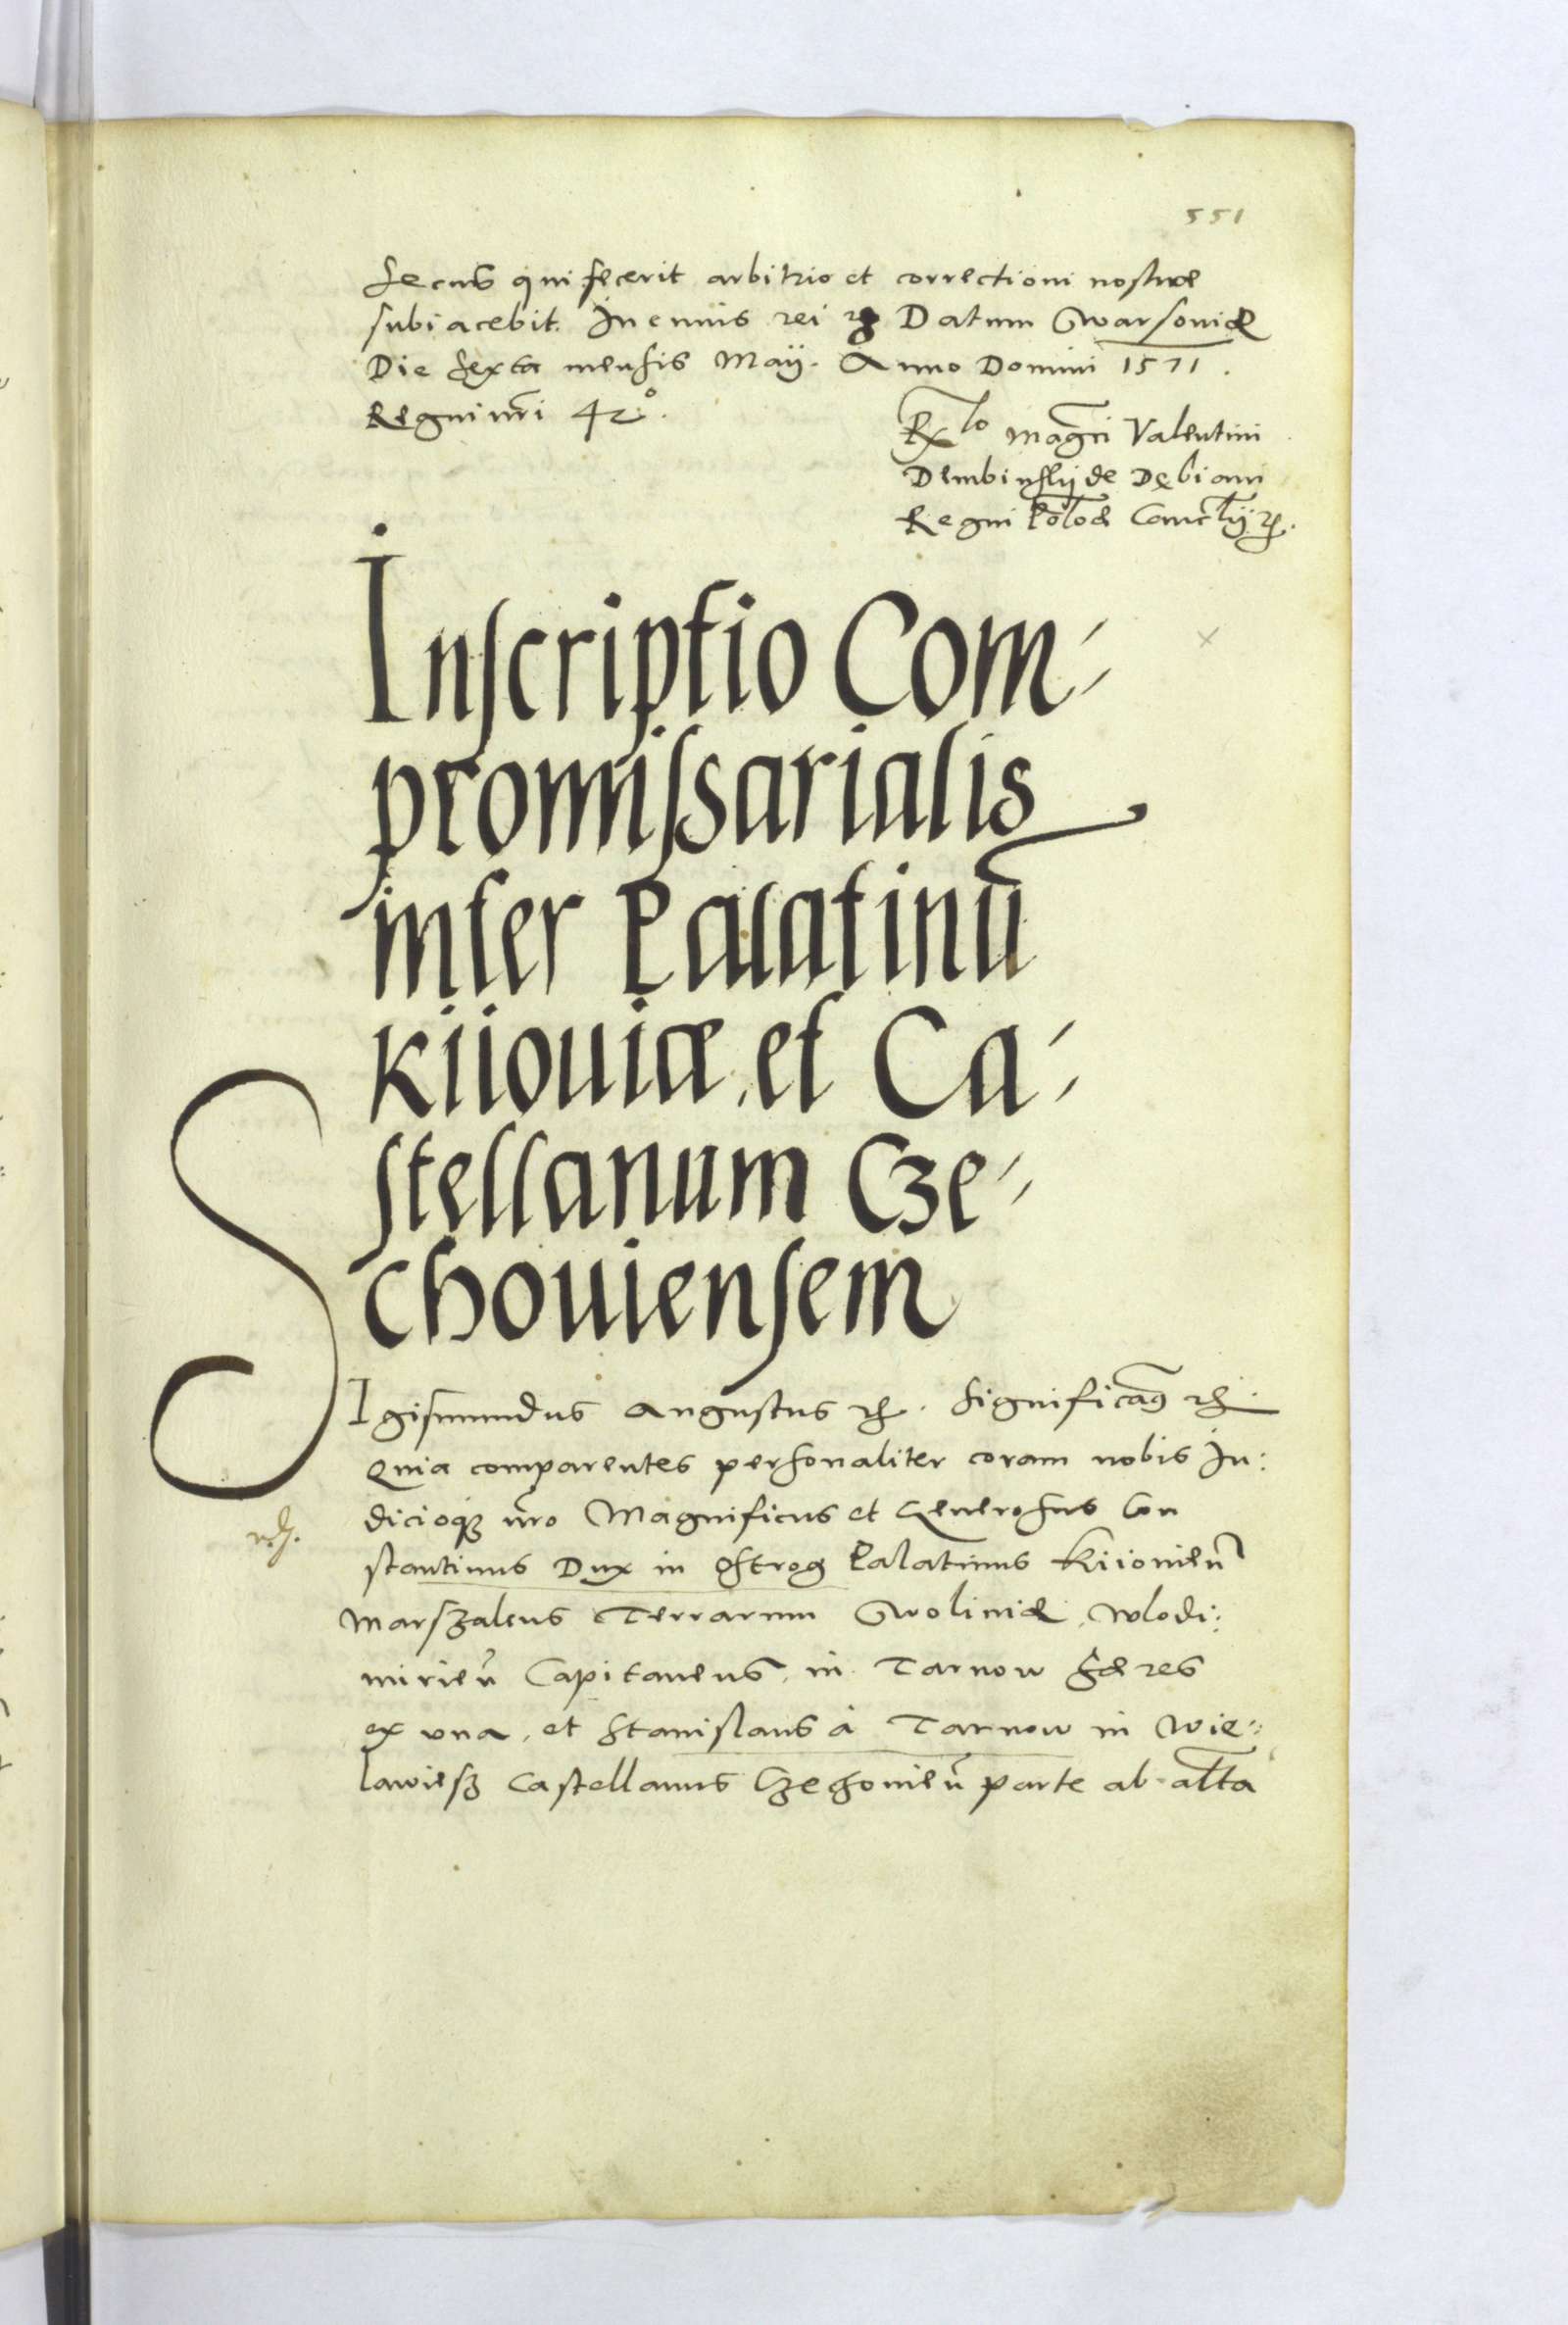 551
Secus qui fecerit arbitrio et correctioni nostræ
subiacebit. In cuius rei etc Datum Gwarsoniæ
Die sexta mensis Maij. Anno Domini 1571.
Regni nri 42°.
Rlo Magci Valentini
Dembinskij de Dębiani
Regni Poloæ Canclrij etc.
Inscriptio Com-
promissarialis
inter Palatinũ
Kiiouiæ, et Ca-
stellanum Cze-
chouiensem
SIgismundus Augustus etc. Significamus etc.
Quia comparentes personaliter coram nobis Iu:
dicioqz nro Magnificus et Generosus Con
stantinus Dux in Ostrog Palatinus Kiiouieñ
Marszalcus Terrarum Gwoliniæ, Wlodi:
mirieñ Capitaneus, in Tarnow hæres
ex vna, et Stanislaus à Tarnow in Wie:
lawiesz Castellanus Czechouieñ parte ab alta